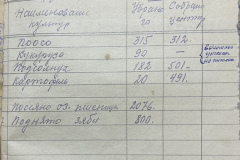 Наименование Убрано Собрано
культур га центнер
Просо 315 312.
Кукуруза 90 —
Подсолнух 182 501-
Картофель 20 491.
Посеяно оз. пшениця 2076.
Поднято зяби 800.